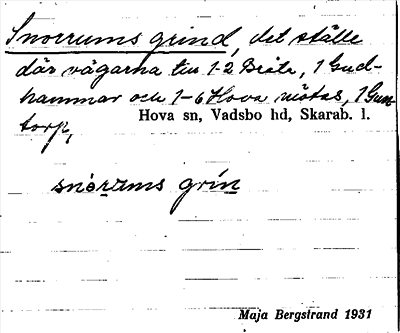 Snorrums grind, det ställe
där vägarna till 1-2 Bråte, 1 Gud-
hammar och 1-6 Hova mötas, 1 Gun-
torp,
Hova sn, Vadsbo hd, Skarab. l.
snorums grin
Maja Bergstrand 1931